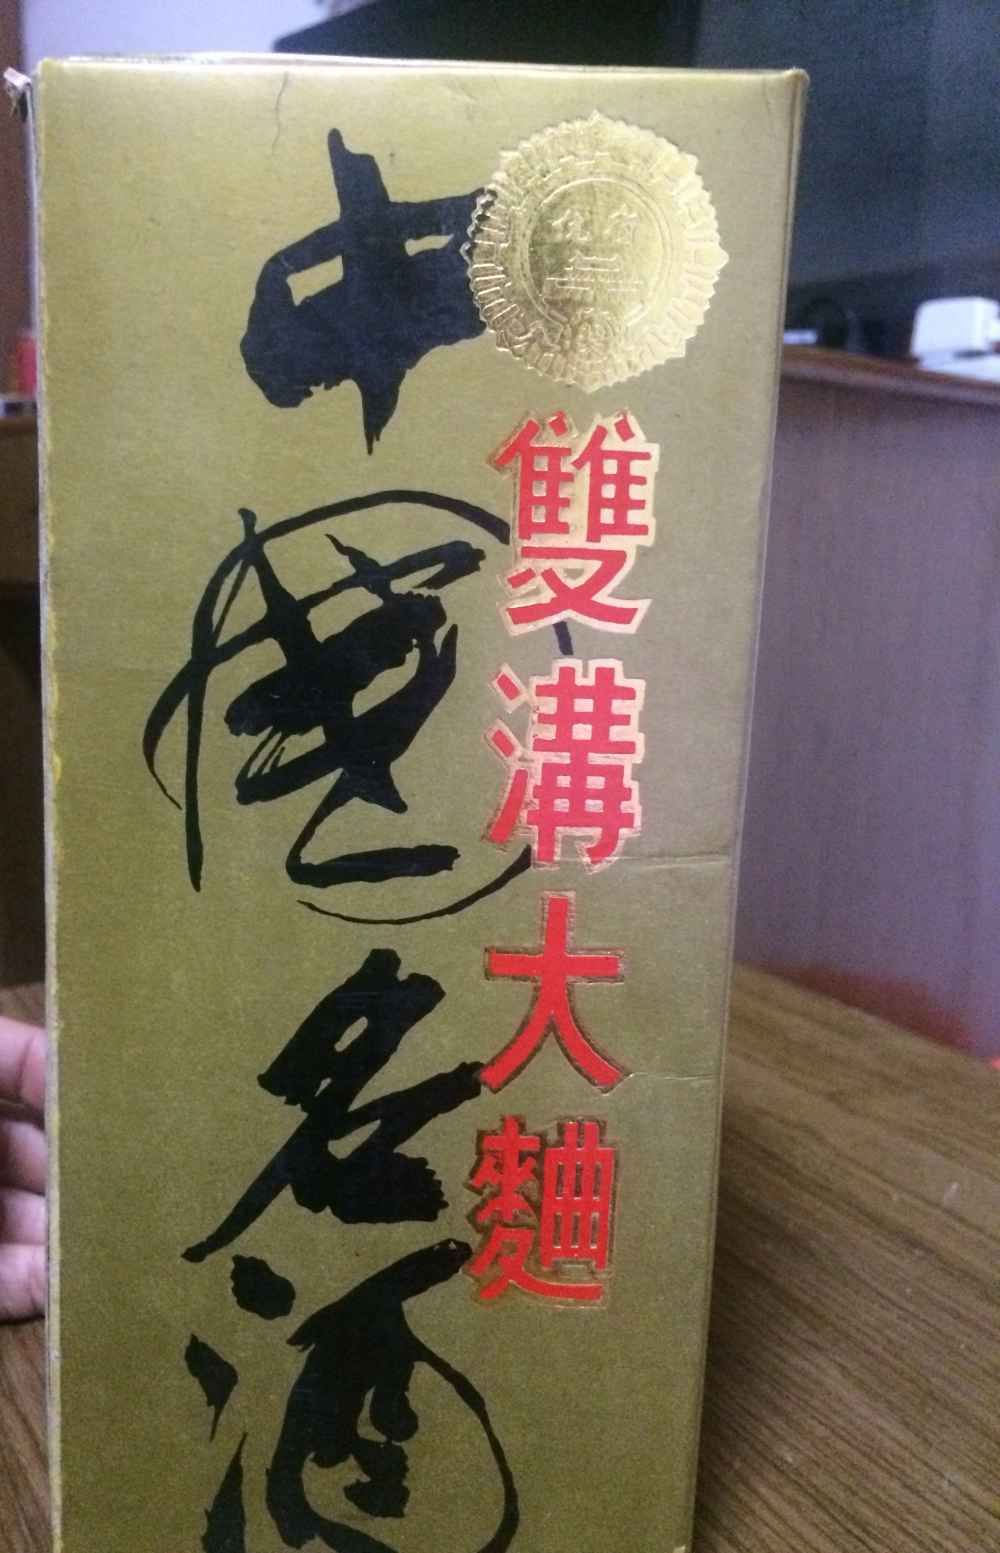 中國名酒
雙溝大麯